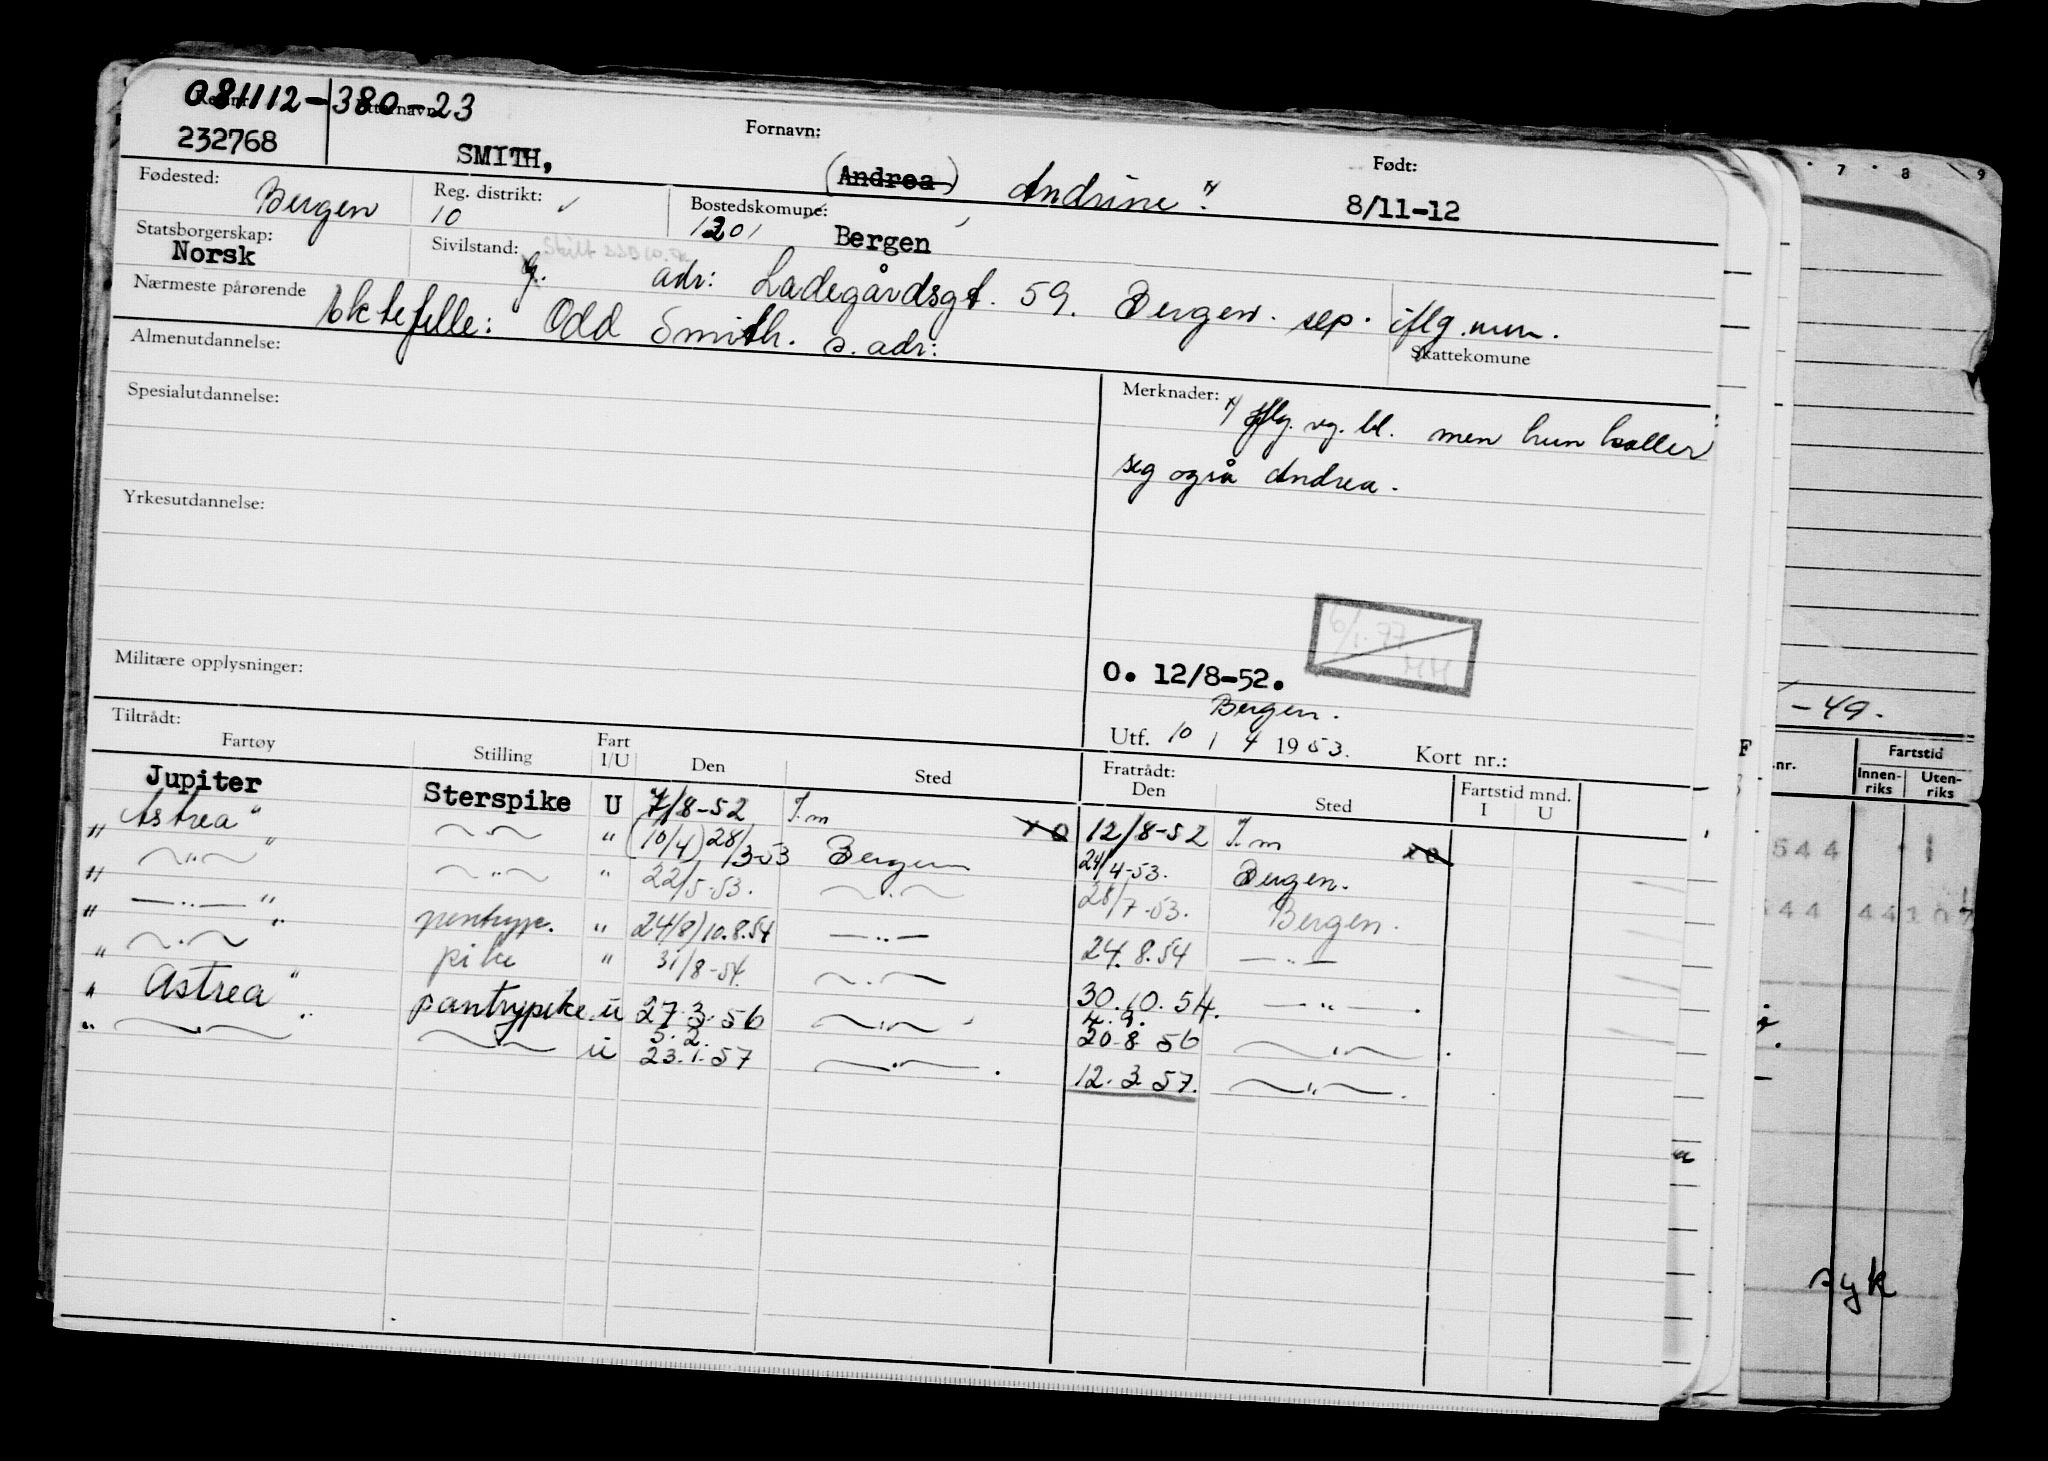 081112-380-23
Fornavn: Født:
232768 SMITH, (Andrea) Andrine x) 8/11-12
Fødested: Bergen Reg. distrikt: 10 Bostedskomune: 1201 Bergen
Statsborgerskap: Norsk Sivilstand: g. adr: Ladegårdsgt. 59. Bergen. sep. iflg. mm.
Nærmeste pårørende Ektefelle: Odd Smith. s. adr:
Skattekomune
Almenutdannelse:
Spesialutdannelse:
Merknader: x) Iflg. vg. bl. men hun kaller
seg også Andrea.
Yrkesutdannelse:
6/1-77
HH
Militære opplysninger:
O. 12/8-52.
Bergen.
Utf. 10 / 4 1953. Kort nr.:
Tiltrådt: Fratrådt:
Fartøy Stilling Fart I/U Den Sted Den Sted Fartstid mnd. I U
Jupiter Sterspike U 7/8-52 T.m 12/8-52 T.m
" Astrea" 〃 " (10/4) 28/3-53 Bergen 24/4-53. Bergen.
" 〃 " 〃 " 22/5-53. 〃 28/7-53. Bergen.
" —〃— " pentryp. " 24/8) 10.8.54 —〃— 24.8.54 —〃—
" 〃 " pike " 31/8-54. 〃 30.10.54. —〃—.
" Astrea " pantrypike u 27.3.56 〃 4.9. 20.8.56 〃.
" 〃 " 〃 u 5.2. 23.1.57 —〃—. 12.3.57. 〃.
7 8 9
-49.
.nr. Fartstid
Innen-riks Uten-riks
544 1
544 44 107
syk